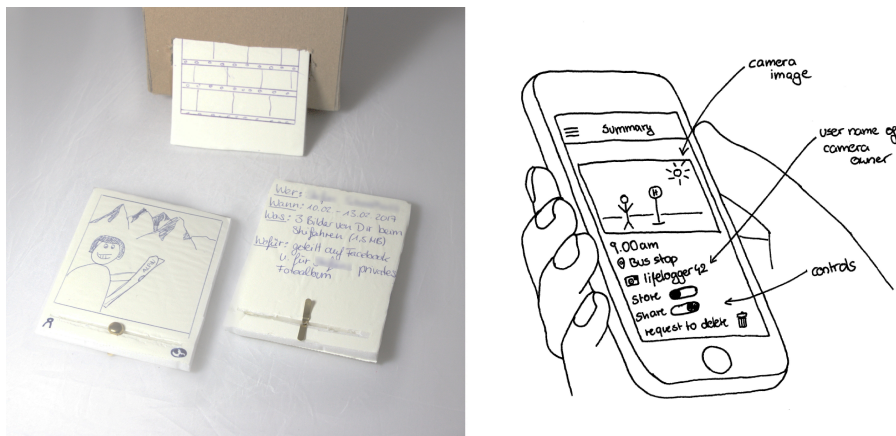 Wer:
Wann: 10.02 - 13.02 2017
Was: 3 Bilder von Dir beim
Skifahren (1,5 MB)
Wofür: geteilt auf Facebook
u. für privates
Fotoalbum
camera
image
Summary
user name of
camera
owner
H
9.00am
Bus stop
lifelogger42
controls
store
share
request to delete